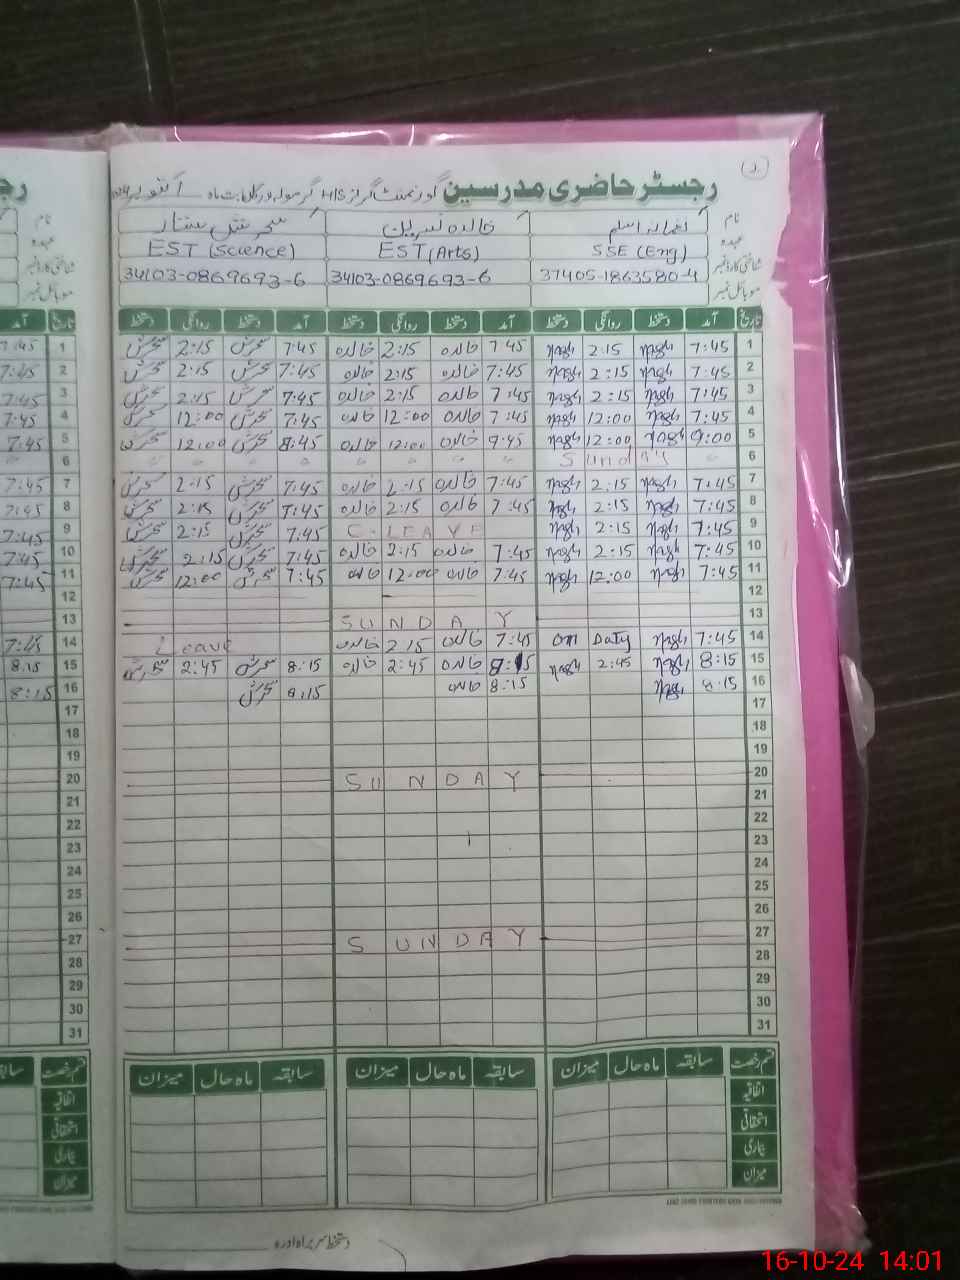 رجسٹر حاضری مدرسین گورنمنٹ گرلز HIS بابت ماہ اکتوبر
2
نام
لغمانہ اسلم خالدہ نسرین سحرش ستار
عہدہ SSE (Eng) EST (Arts) EST (Science)
شناختی کارڈ نمبر 37405-1863580-4 34103-0869693-6 34103-0869693-6
موبائل نمبر
تاریخ آمد دستخط روانگی دستخط آمد دستخط روانگی دستخط آمد دستخط روانگی دستخط
1 7:45 2:15 7 45 خالدہ 2:15 خالدہ 7:45 سحرش 2:15 سحرش
2 7:45 2:15 7:45 خالدہ 2:15 خالدہ 7:45 سحرش 2:15 سحرش
3 7:45 2:15 7:45 خالدہ 2:15 خالدہ 7:45 سحرش 2:15 سحرش
4 7:45 12:00 7:45 خالدہ 12:00 خالدہ 7:45 سحرش 12:00 سحرش
5 9:00 12:00 9:45 خالدہ 12:00 خالدہ 8:45 سحرش 12:00 سحرش
6 Sunday
7 7:45 2:15 7:45 خالدہ 2:15 خالدہ 7:45 سحرش 2:15 سحرش
8 7:45 2:15 7:45 خالدہ 2:15 خالدہ 7:45 سحرش 2:15 سحرش
9 7:45 2:15 C-LEAVE 7:45 سحرش 2:15 سحرش
10 7:45 2:15 7:45 خالدہ 2:15 خالدہ 7:45 سحرش 2:15 سحرش
11 7:45 12:00 7:45 خالدہ 12:00 خالدہ 7:45 سحرش 12:00 سحرش
12
13 SUNDAY
14 7:45 on Daty 7:45 خالدہ 2:15 خالدہ Leave
15 8:15 2:45 8:15 خالدہ 2:45 خالدہ 8:15 سحرش 2:45 سحرش
16 8:15 8:15 خالدہ 8:15 سحرش
17
18
19
20 SUNDAY
21
22
23
24
25
26
27 SUNDAY
28
29
30
31
قسم رخصت سابقہ ماہ حال میزان سابقہ ماہ حال میزان سابقہ ماہ حال میزان
اتفاقیہ
استحقاقی
بیماری
میزان
دستخط سربراہ ادارہ
آمد تاریخ
7:45 1
7:45 2
7:45 3
7:45 4
7:45 5
6
7:45 7
8:45 8
7:45 9
7:45 10
7:45 11
12
13
7:45 14
8:15 15
8:15 16
17
18
19
20
21
22
23
24
25
26
27
28
29
30
31
قسم رخصت
اتفاقیہ
استحقاقی
بیماری
میزان
16-10-24 14:01